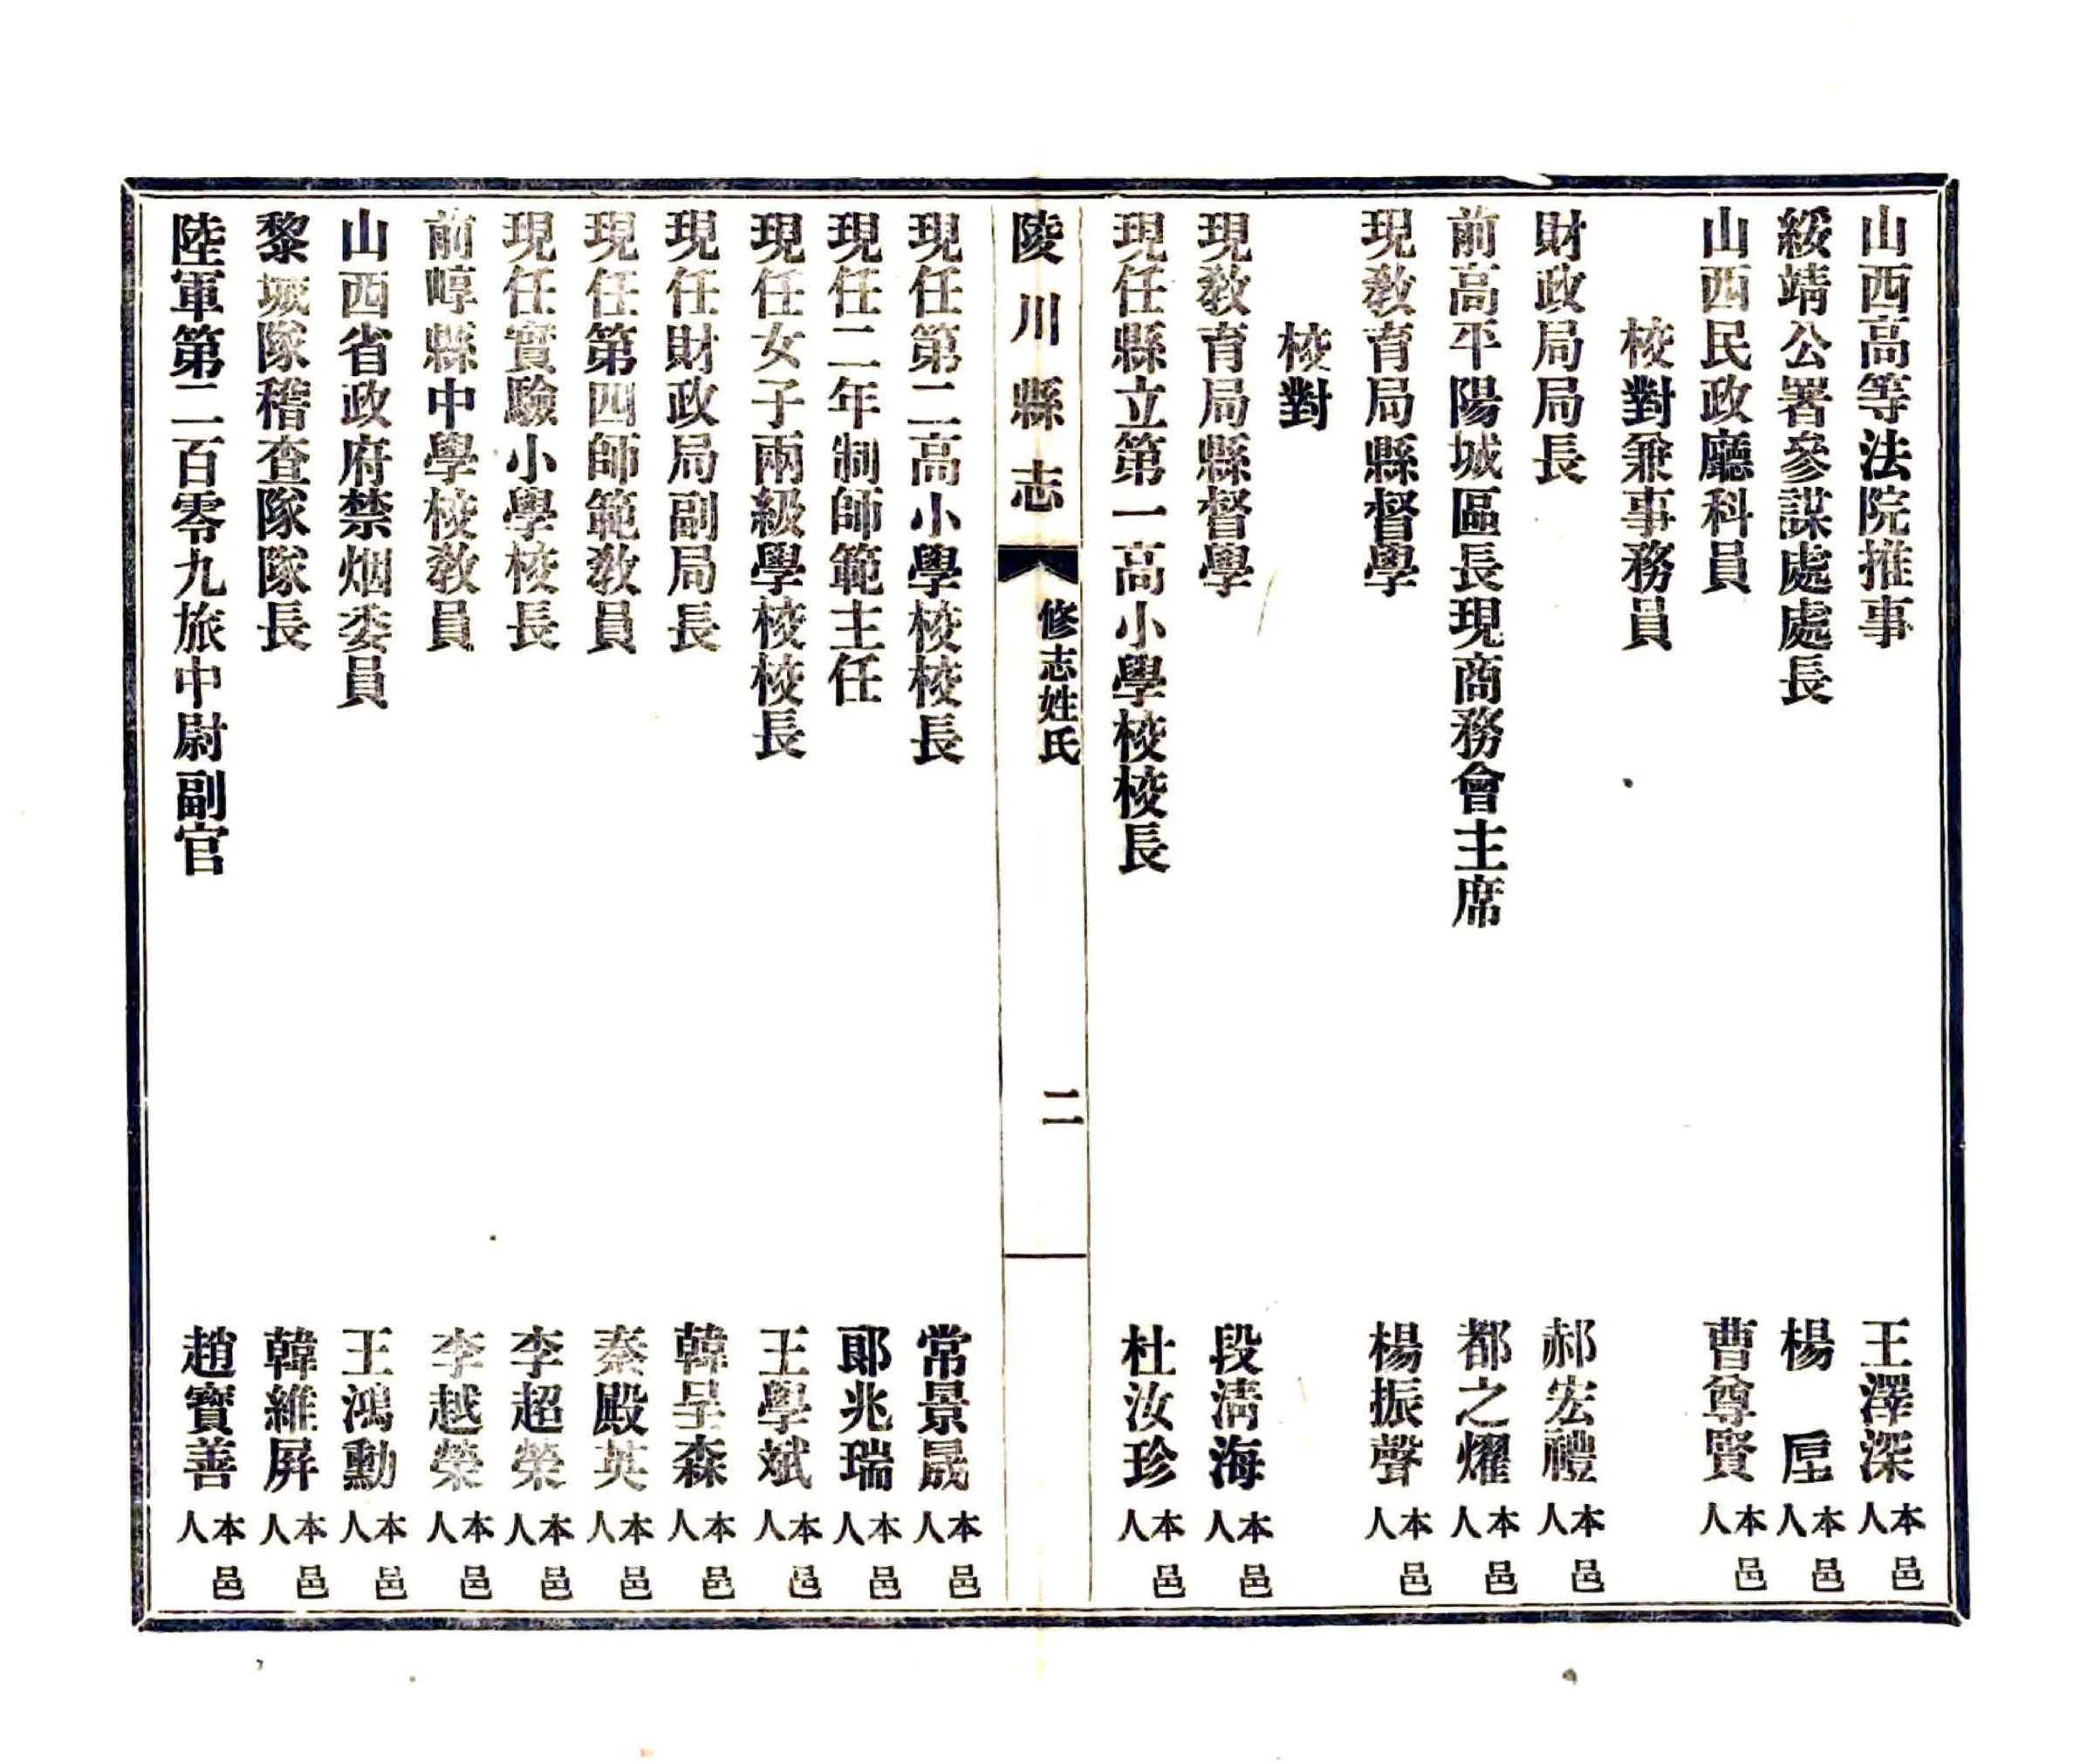 山西高等法院推事 王澤深 本邑人
綏靖公署參謀處處長 楊 垕 本邑人
山西民政廳科員 曹尊賢 本邑人
校對兼事務員
財政局局長 郝宏禮 本邑人
前高平陽城區長現商務會主席 都之燿 本邑人
現教育局縣督學 楊振聲 本邑人
校對
現教育局縣督學 段淸海 本邑人
現任縣立第一高小學校校長 杜汝珍 本邑人
陵川縣志 修志姓氏 二
現任第二高小學校校長 常景晟 本邑人
現任二年制師範主任 郎兆瑞 本邑人
現任女子兩級學校校長 王學斌 本邑人
現任財政局副局長 韓森 本邑人
現任第四師範教員 秦殿英 本邑人
現任實驗小學校長 李超榮 本邑人
前崞縣中學校教員 李越榮 本邑人
山西省政府禁烟委員 王鴻勳 本邑人
黎城隊稽查隊隊長 韓維屏 本邑人
陸軍第二百零九旅中尉副官 趙寶善 本邑人